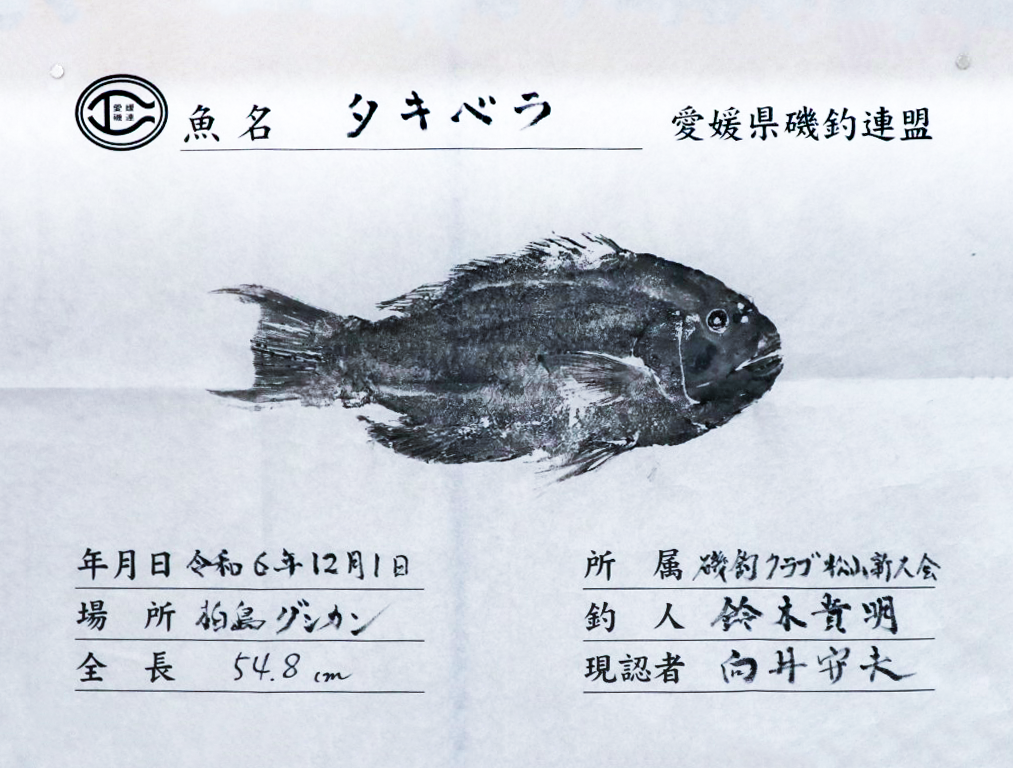 愛媛
磯連
魚名 タキベラ
愛媛県磯釣連盟
年月日 令和6年12月1日
場所 柏島グンカン
全長 54.8cm
所属 磯釣クラブ松山新人会
釣人 鈴木貴明
現認者 向井守夫